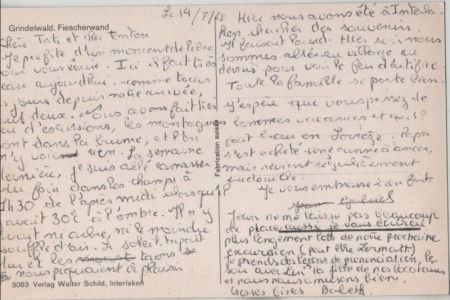 Grindelwald. Fiescherwand
Le 14/7/68
Chère Tati et cher Tonton
Je profite d'un moment de libre
vous écrire. Ici il fait très
beau aujourd'hui. comme tous
jours depuis notre arrivée,
sauf deux. Nous avons fait très
peu d'excursions, les montagnes
sont dans la brume, et l'on
n'y voit rien. La semaine
dernière, je suis allé ramasser
du foin dans les champs à
1h30 de l'après midi alors qu'il
avait 30° à l'ombre. Il n'y
avait ni arbre, ni le moindre
souffle d'air. Le soleil tapait
et les taons
nous piquaient à plaisir
3063 Verlag Walter Schild, Interlaken
Fabrication suisse
Hier nous avons été à Interla-
ken chercher des souvenirs.
Il faisait lourd. Hier soir nous
sommes allés au village au
dessus pour voir le feu d'artifice.
Toute la famille se porte bien.
J'espère que vous passez de
bonnes vacances et qu'il
fait beau en Papa
s'est acheté une canne à pêche,
mais revient régulièrement
bredouille.
Je vous embrasse bien fort
Jean ne me laisse pas beaucoup
de place aussi je vous écrirai
plus longuement lors de notre prochaine
excursion (peut être Zermatt)
Je prends des leçons de prononciation, le
soir avec la fille de nos
et nous nous amusons bien.
Grosses bises